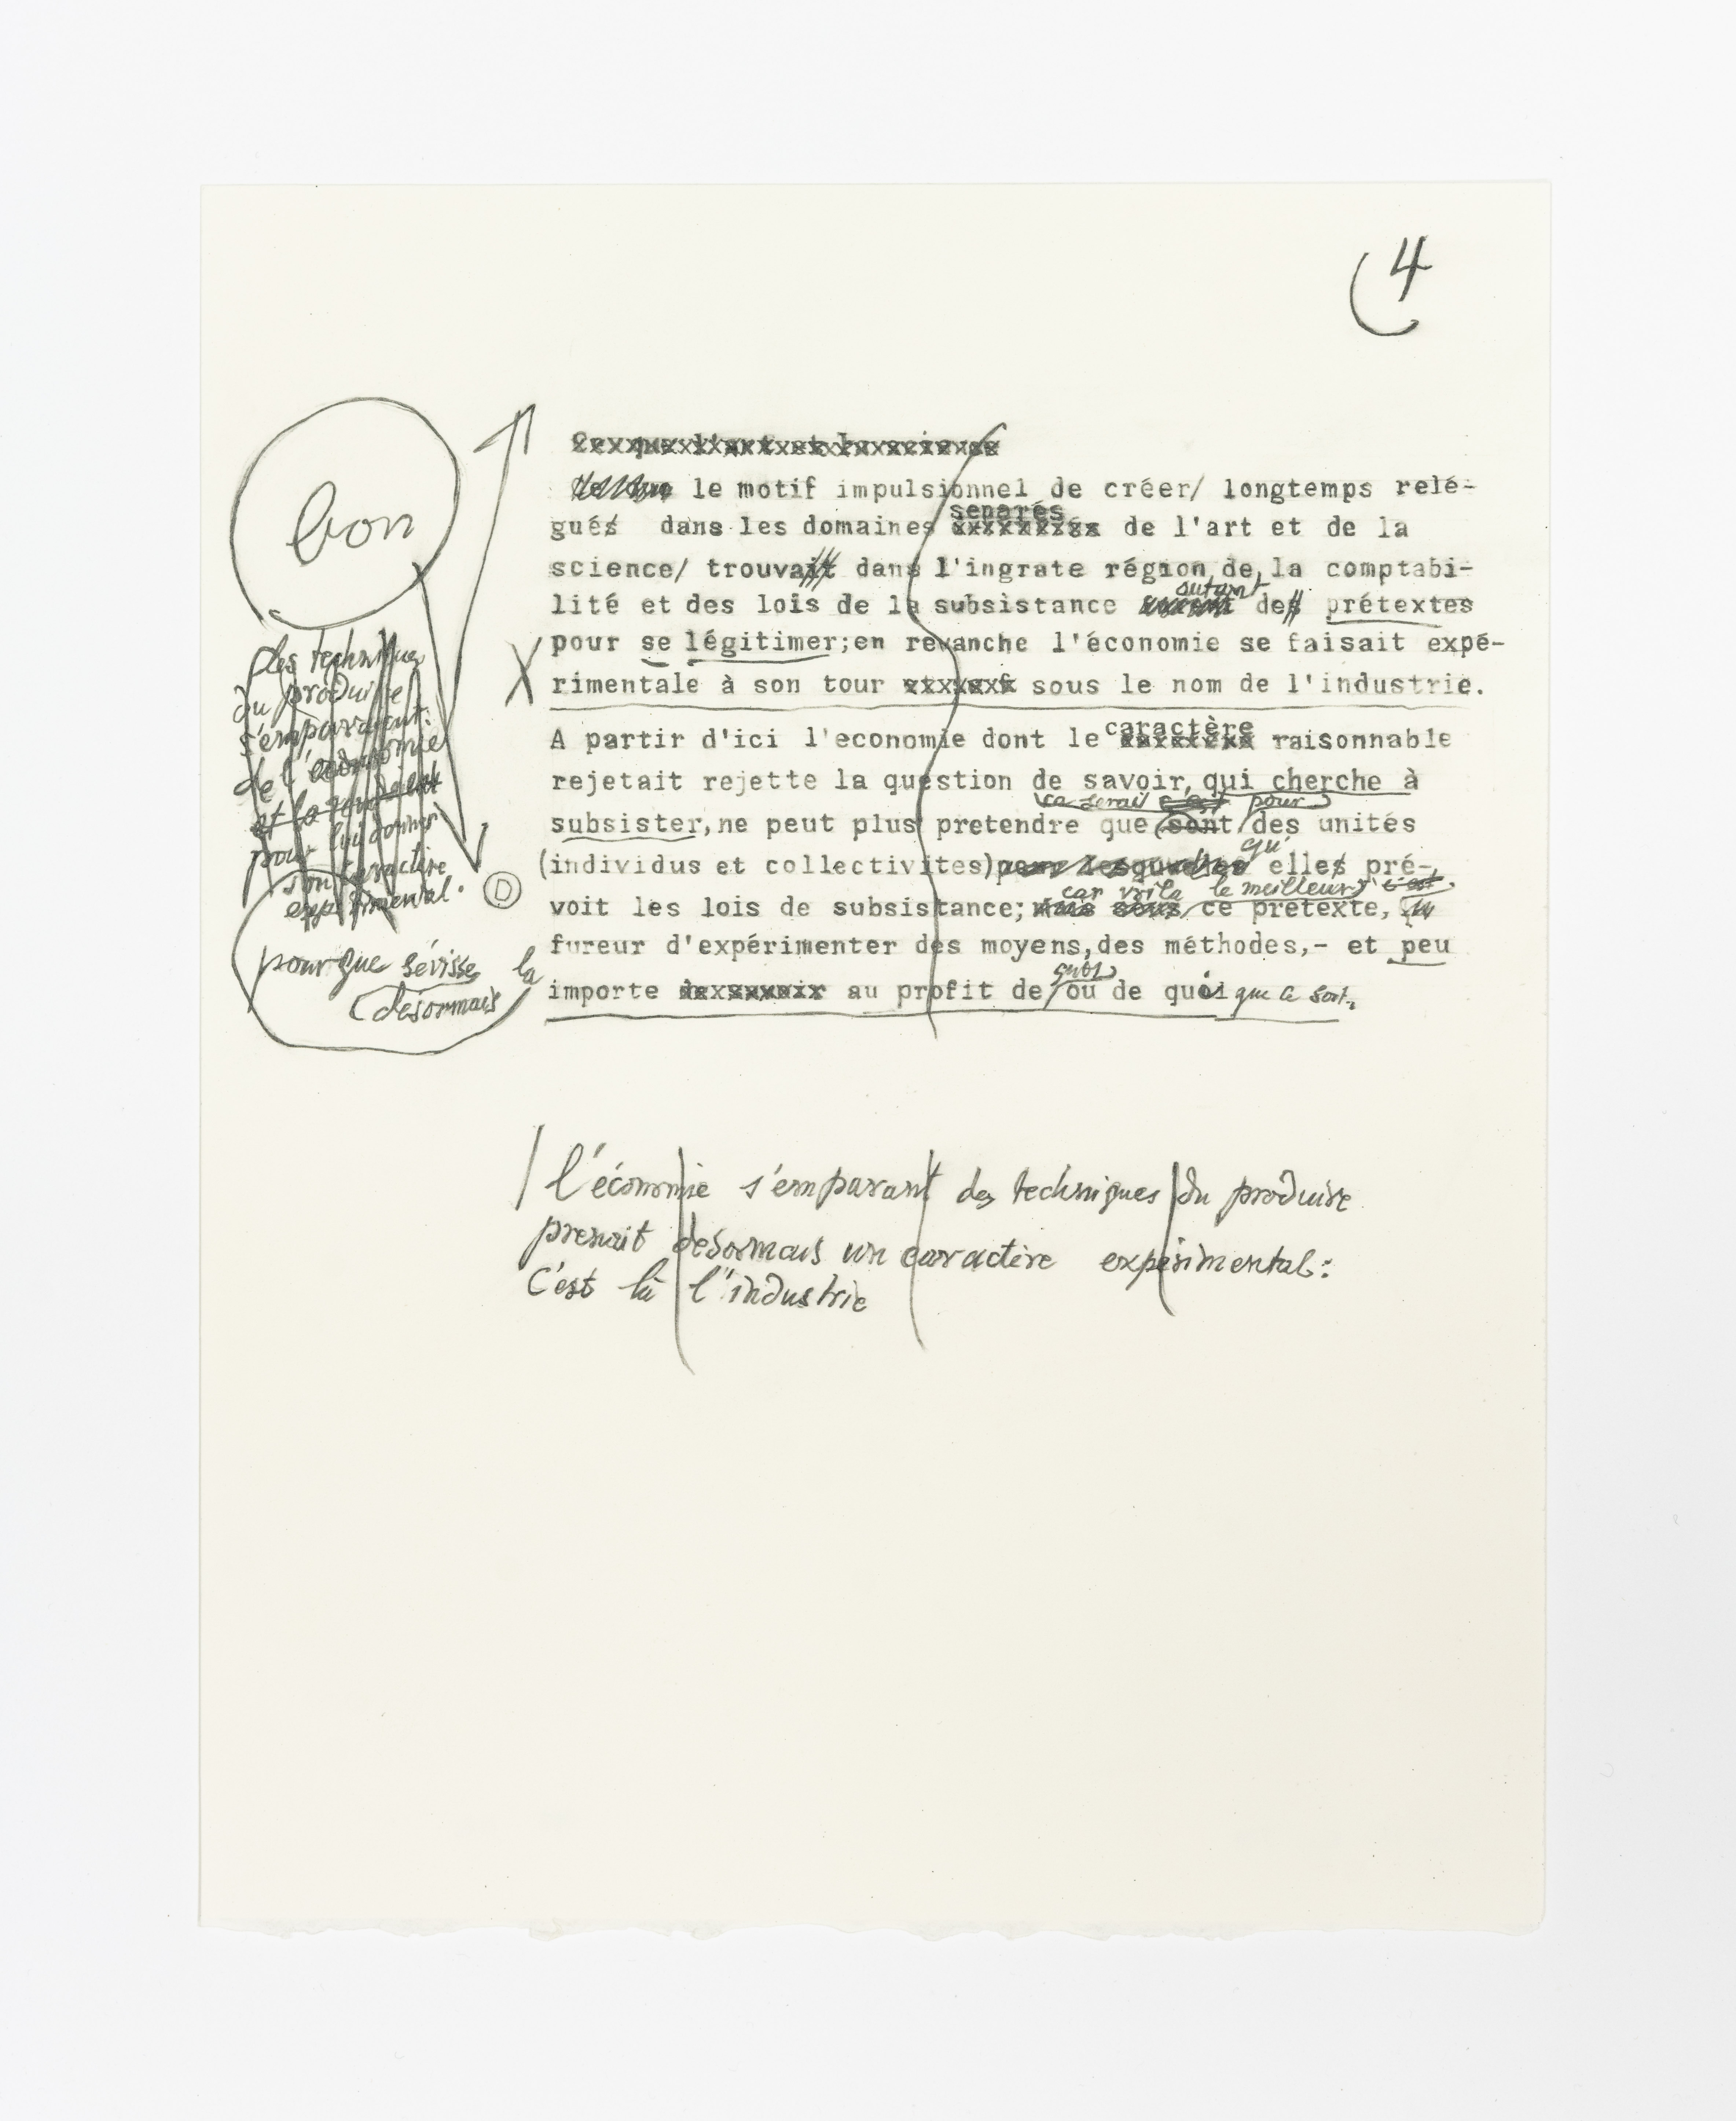 4
bon
Ce que l'art et la science
le motif impulsionnel de créer/ longtemps relé-
gués dans les domaines séparés de l'art et de la
science/ trouvait dans l'ingrate région de la comptabi-
lité et des lois de la subsistance autant des prétextes
pour se légitimer;en revanche l'économie se faisait expé-
rimentale à son tour sous le nom de l'industrie.
A partir d'ici l'economie dont le caractère raisonnable
rejetait rejette la question de savoir, qui cherche à
ce serait c'est pour
subsister,ne peut plus pretendre que sont des unités
qu'
(individus et collectivites)pour lesquelles elles pré-
car voila le meilleur c'est
voit les lois de subsistance; mais sous ce prétexte,
fureur d'expérimenter des moyens,des méthodes,- et peu
importe au profit de qui ou de quoi que ce soit.
des techniques
du produire
s'emparaient
de l'économie
et la rendait
pour lui donner
son caractère
expérimental.
D
pour que sévisse la
désormais
l'économie s'emparant des techniques du produire
prenait desormais un caractère expérimental:
C'est là l'industrie